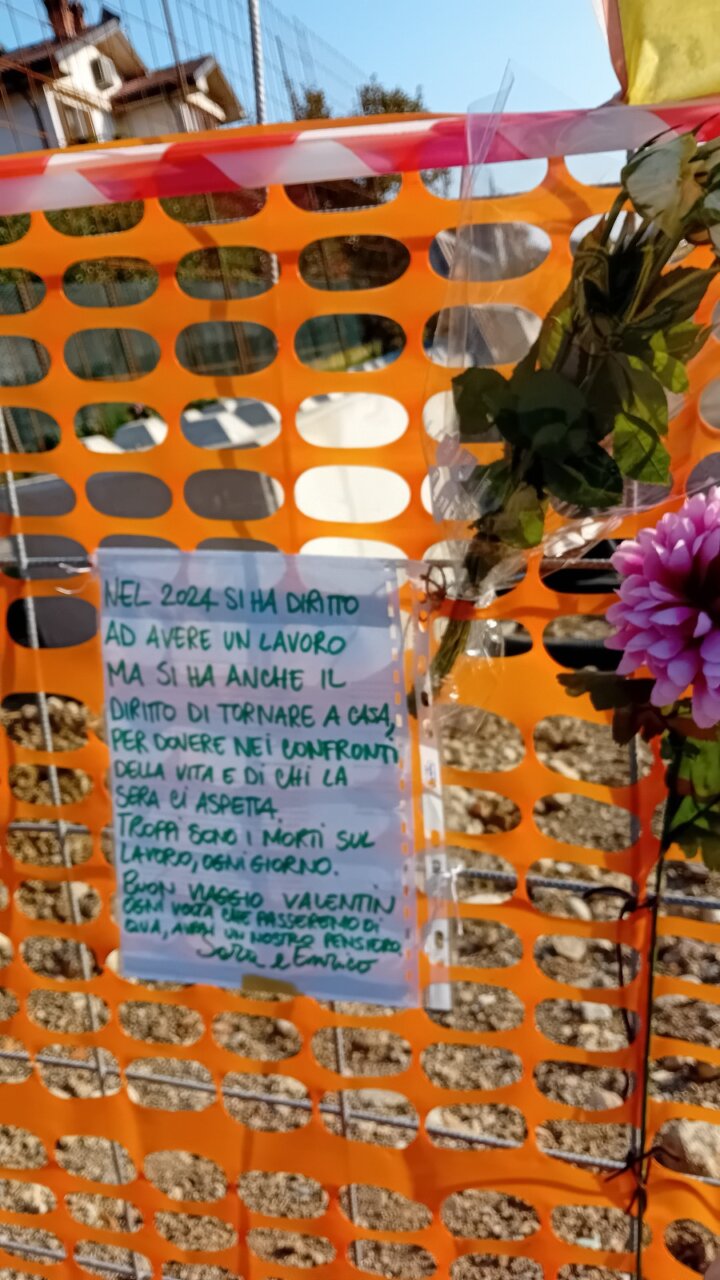 NEL 2024 SI HA DIRITTO
AD AVERE UN LAVORO
MA SI HA ANCHE IL
DIRITTO DI TORNARE A CASA,
PER DOVERE NEI CONFRONTI
DELLA VITA E DI CHI LA
SERA CI ASPETTA.
TROPPI SONO I MORTI SUL
LAVORO, OGNI GIORNO.
BUON VIAGGIO VALENTIN
OGNI VOLTA CHE PASSEREMO DI
QUA, AVRAI UN NOSTRO PENSIERO
Sara e Enrico